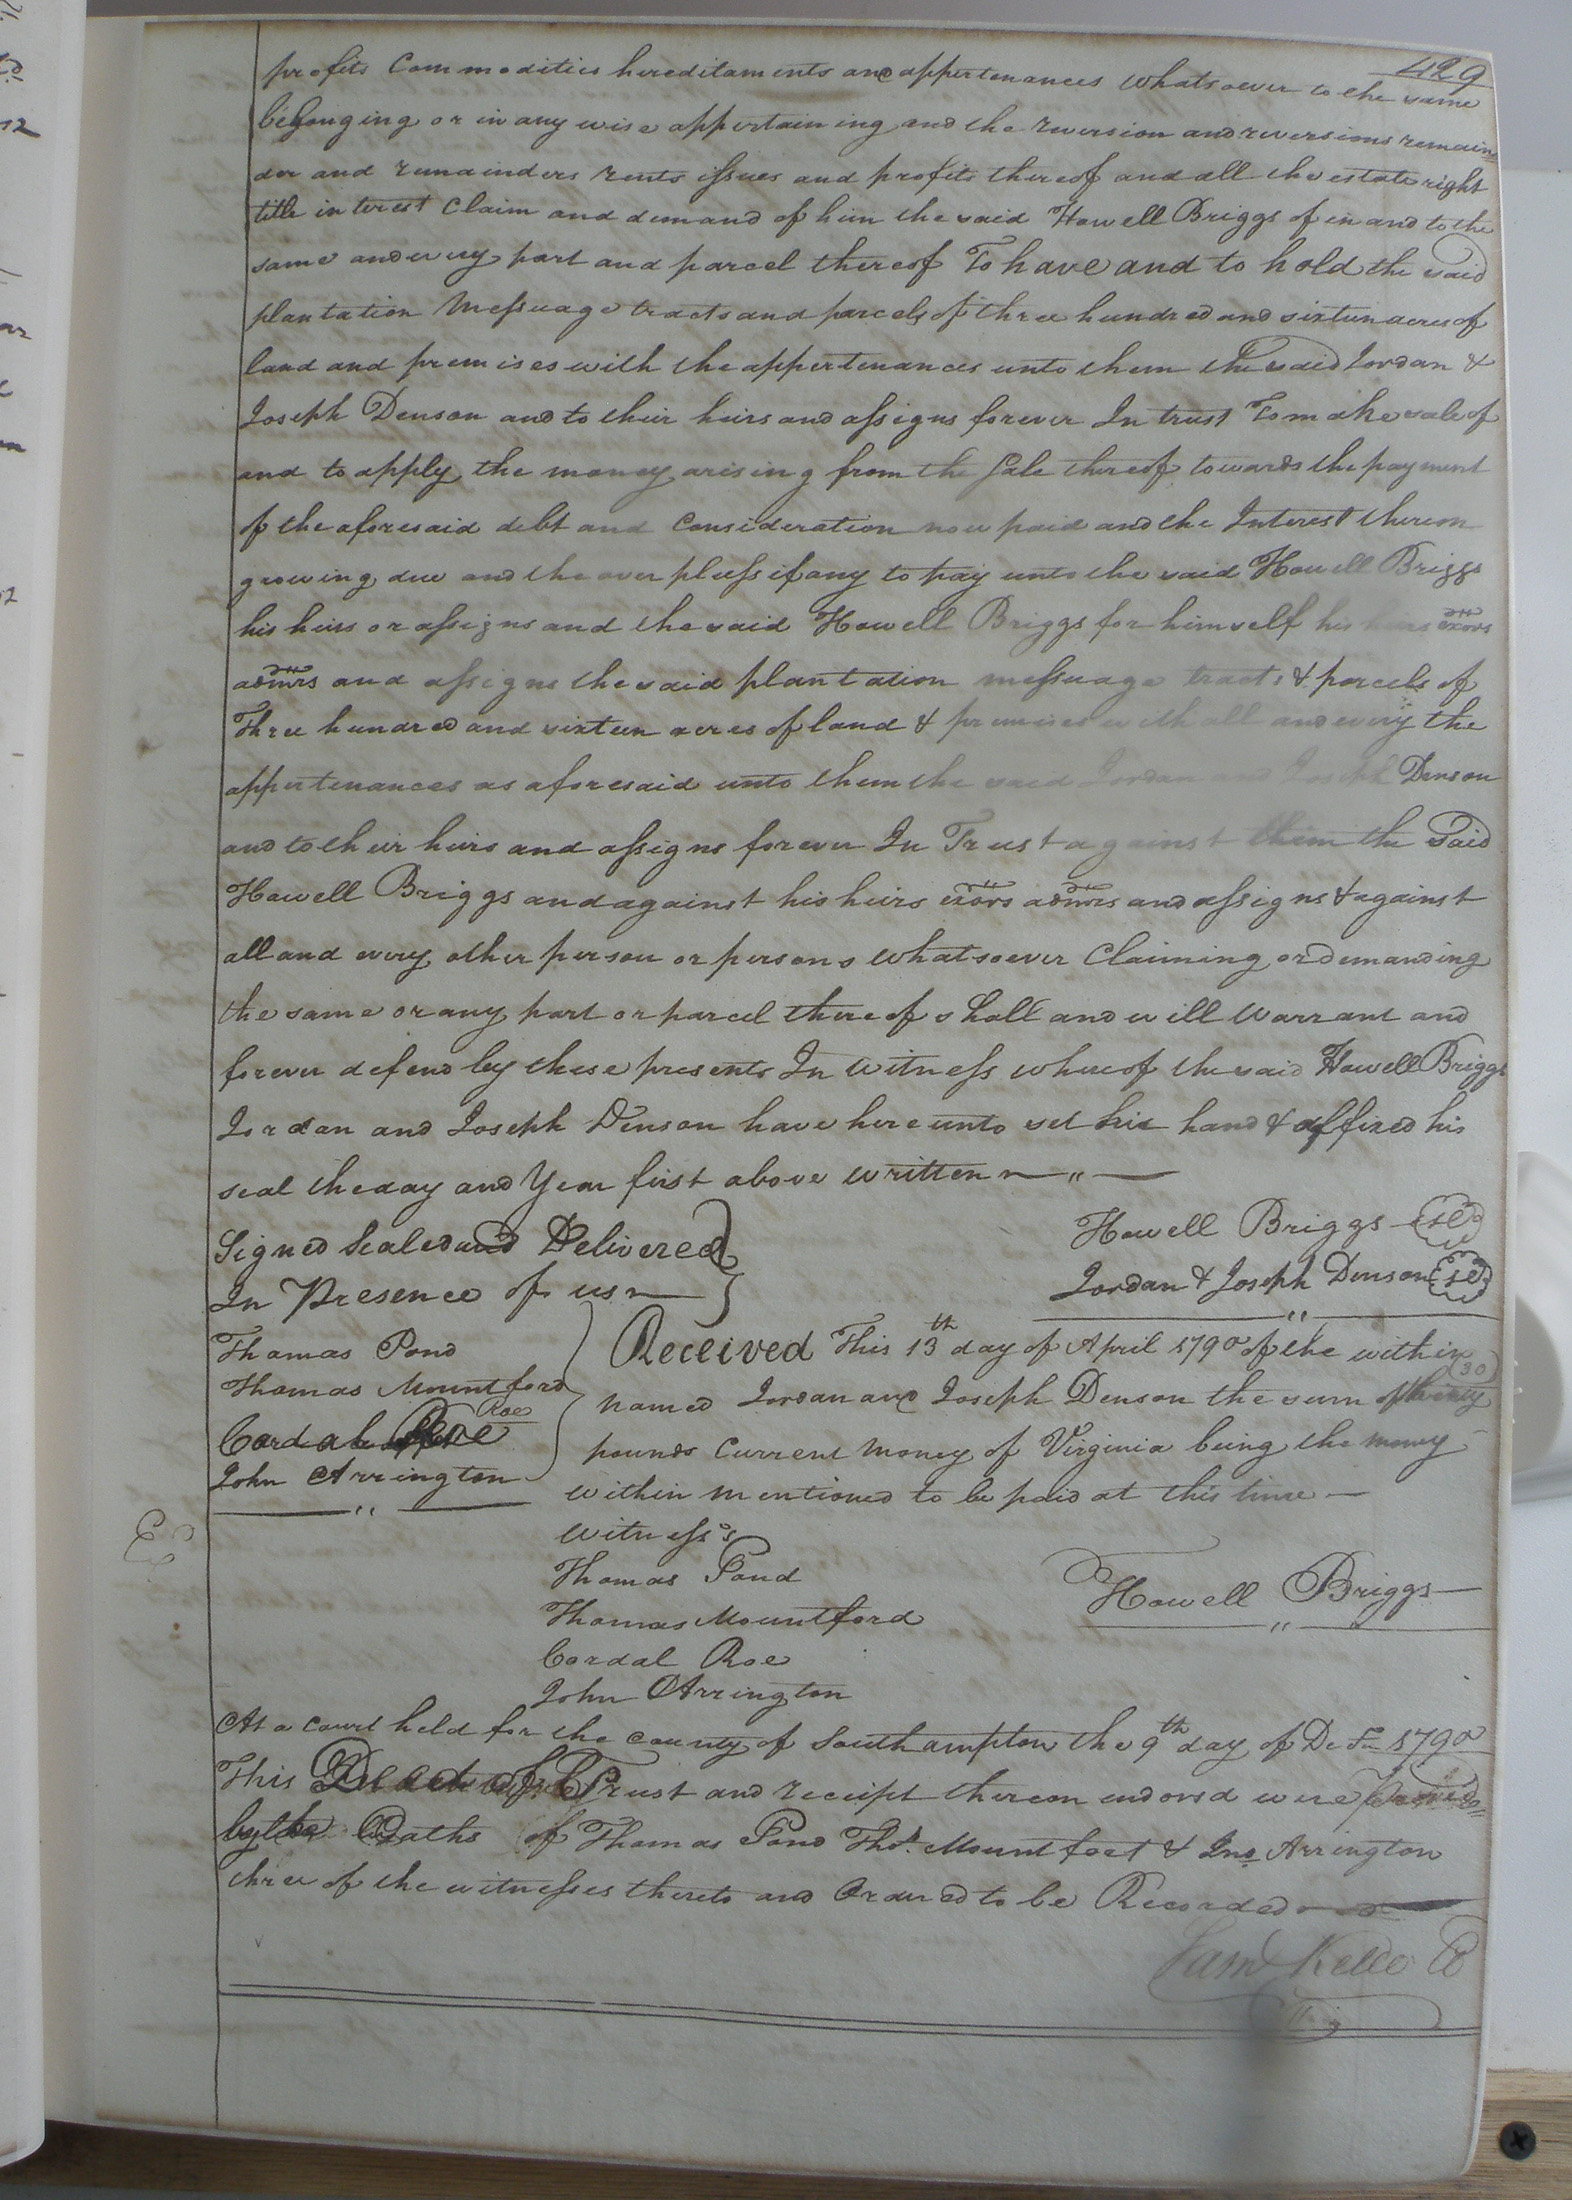 429
profits Commodities hereditaments and appertenances whatsoever to the same
belonging or in any wise appertaining and the reversion and reversions remain=
der and remainders rents issues and profits thereof and all the estate right
title interest Claim and demand of him the said Howell Briggs of in and to the
same and every part and parcel thereof To have and to hold the said
plantation Messuage tracts and parcels of three hundred and sixteen acres of
land and premises with the appertenances unto them the said Jordan &
Joseph Denson and to their heirs and assigns forever In trust To make sale of
and to apply the money arising from the Sale thereof towards the payment
of the aforesaid debt and Consideration now paid and the Interest thereon
growing due and the over pluss if any to pay unto the said Howell Briggs
his heirs or assigns and the said Howell Briggs for himself his heirs exors
admrs and assigns the said plantation messuage tracts & parcels of
Three hundred and sixteen acres of land & premises with all and every the
appertenances as aforesaid unto them the said Jordan and Joseph Denson
and to their heirs and assigns forever In Trust against them the Said
Howell Briggs and against his heirs exors admrs and assigns & against
all and every other person or persons whatsoever Claiming or demanding
the same or any part or parcel thereof shall and will Warrant and
forever defend by these presents In witness whereof the said Howell Briggs
Jordan and Joseph Denson have here unto set his hand & affixed his
seal the day and Year first above written
Signed Sealed and Delivered
In Presence of us
Howell Briggs
Jordan & Joseph Denson
Thomas Pond
Thomas Mountford
Roe
Cordal
John Arrington
Received This 13th day of April 1790 of the within
30
named Jordan and Joseph Denson the sum of thirty
pounds Current Money of Virginia being the money
within mentioned to be paid at this time
Witness's
Thomas Pond
Thomas Mountford
Cordal Roe
John Arrington
Howell Briggs
At a Court held for the County of Southampton the 9th day of 1790
This Deed of Trust and receipt thereon endorsd were proved
by the Oaths of Thomas Pond Thos. Mountfort & Jno Arrington
three of the witnesses thereto and Ordered to be Recorded
Saml Kello